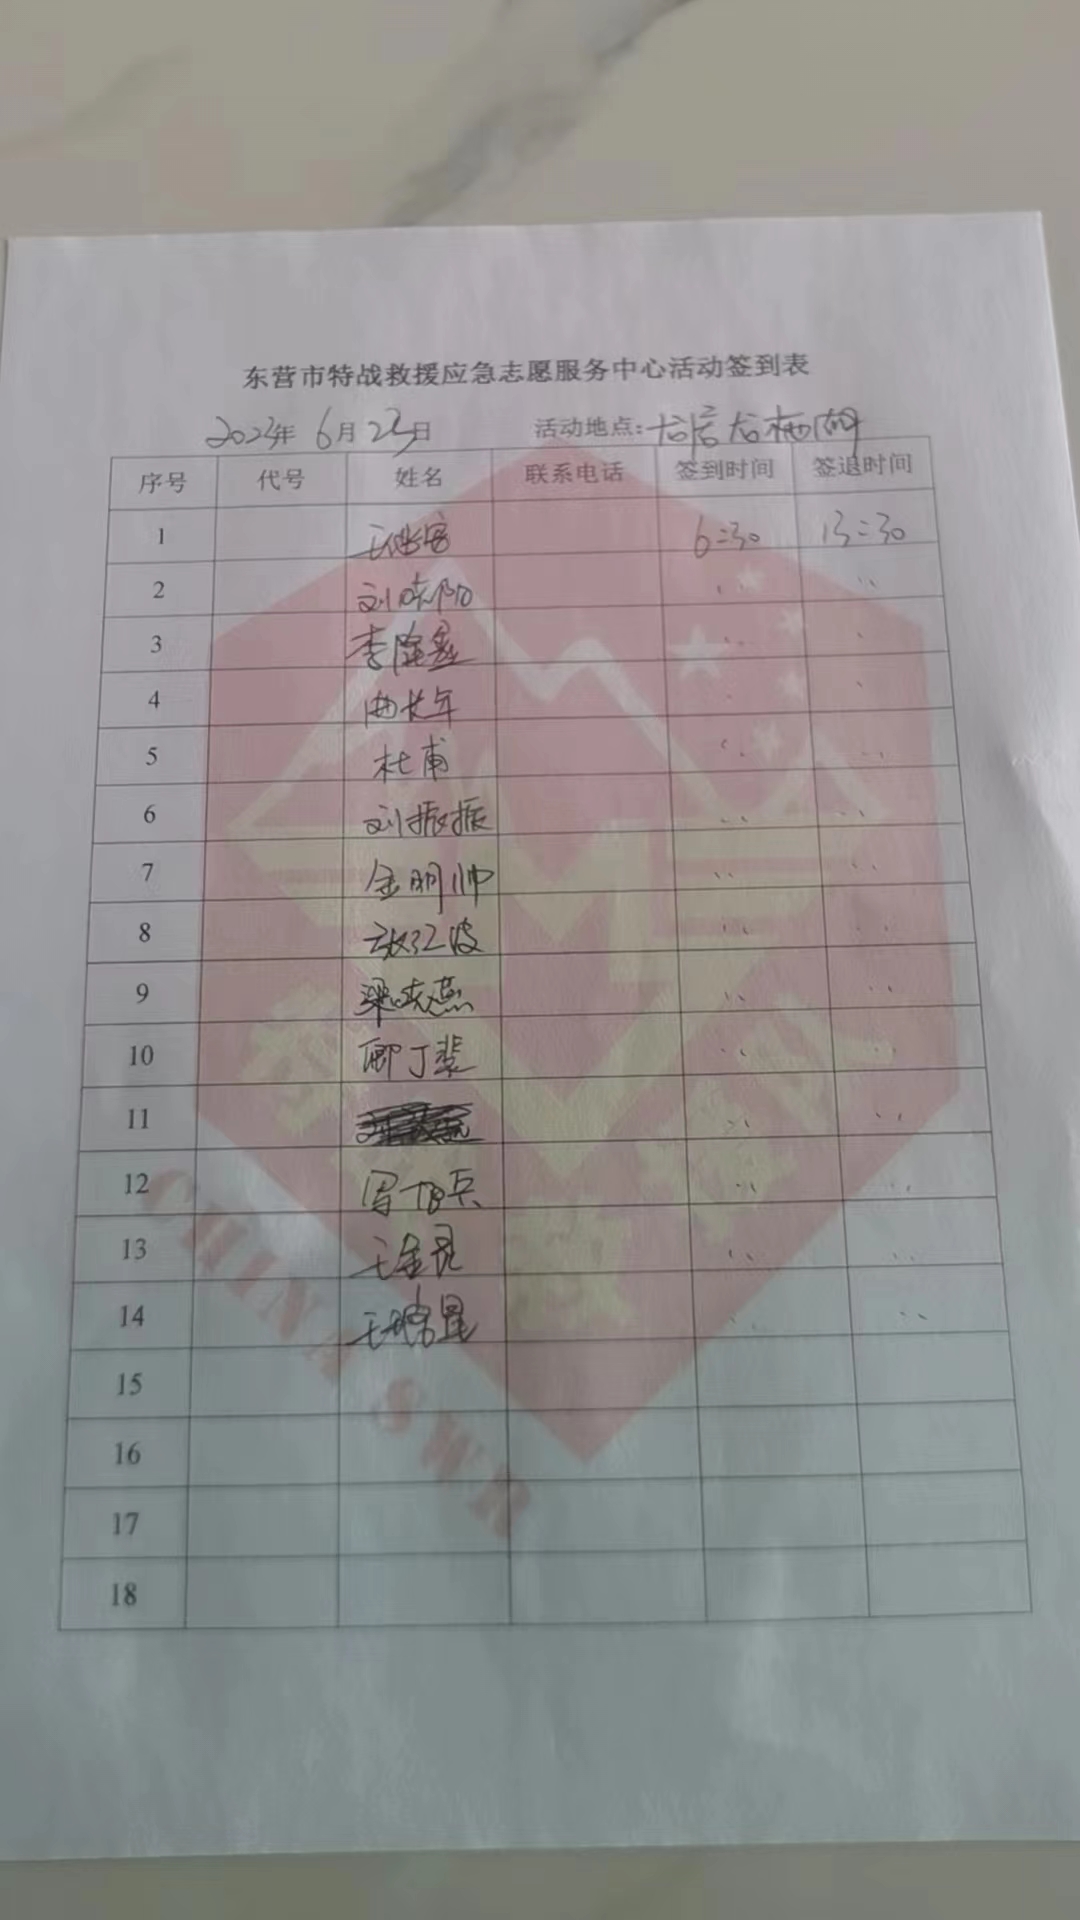 东营市特战救援应急志愿服务中心活动签到表
2023年 6月 23日 活动地点:龙居龙栖湖
序号 代号 姓名 联系电话 签到时间 签退时间
1 6:30 13:30
2 刘晓阳
3 李隆鑫
4 曲长年
5 杜甫
6 刘振振
7 金明帅
8 江波
9 梁晓燕
10 丁裴
11
12 兵
13 王金
14 王
15
16
17
18
CHINA SWR